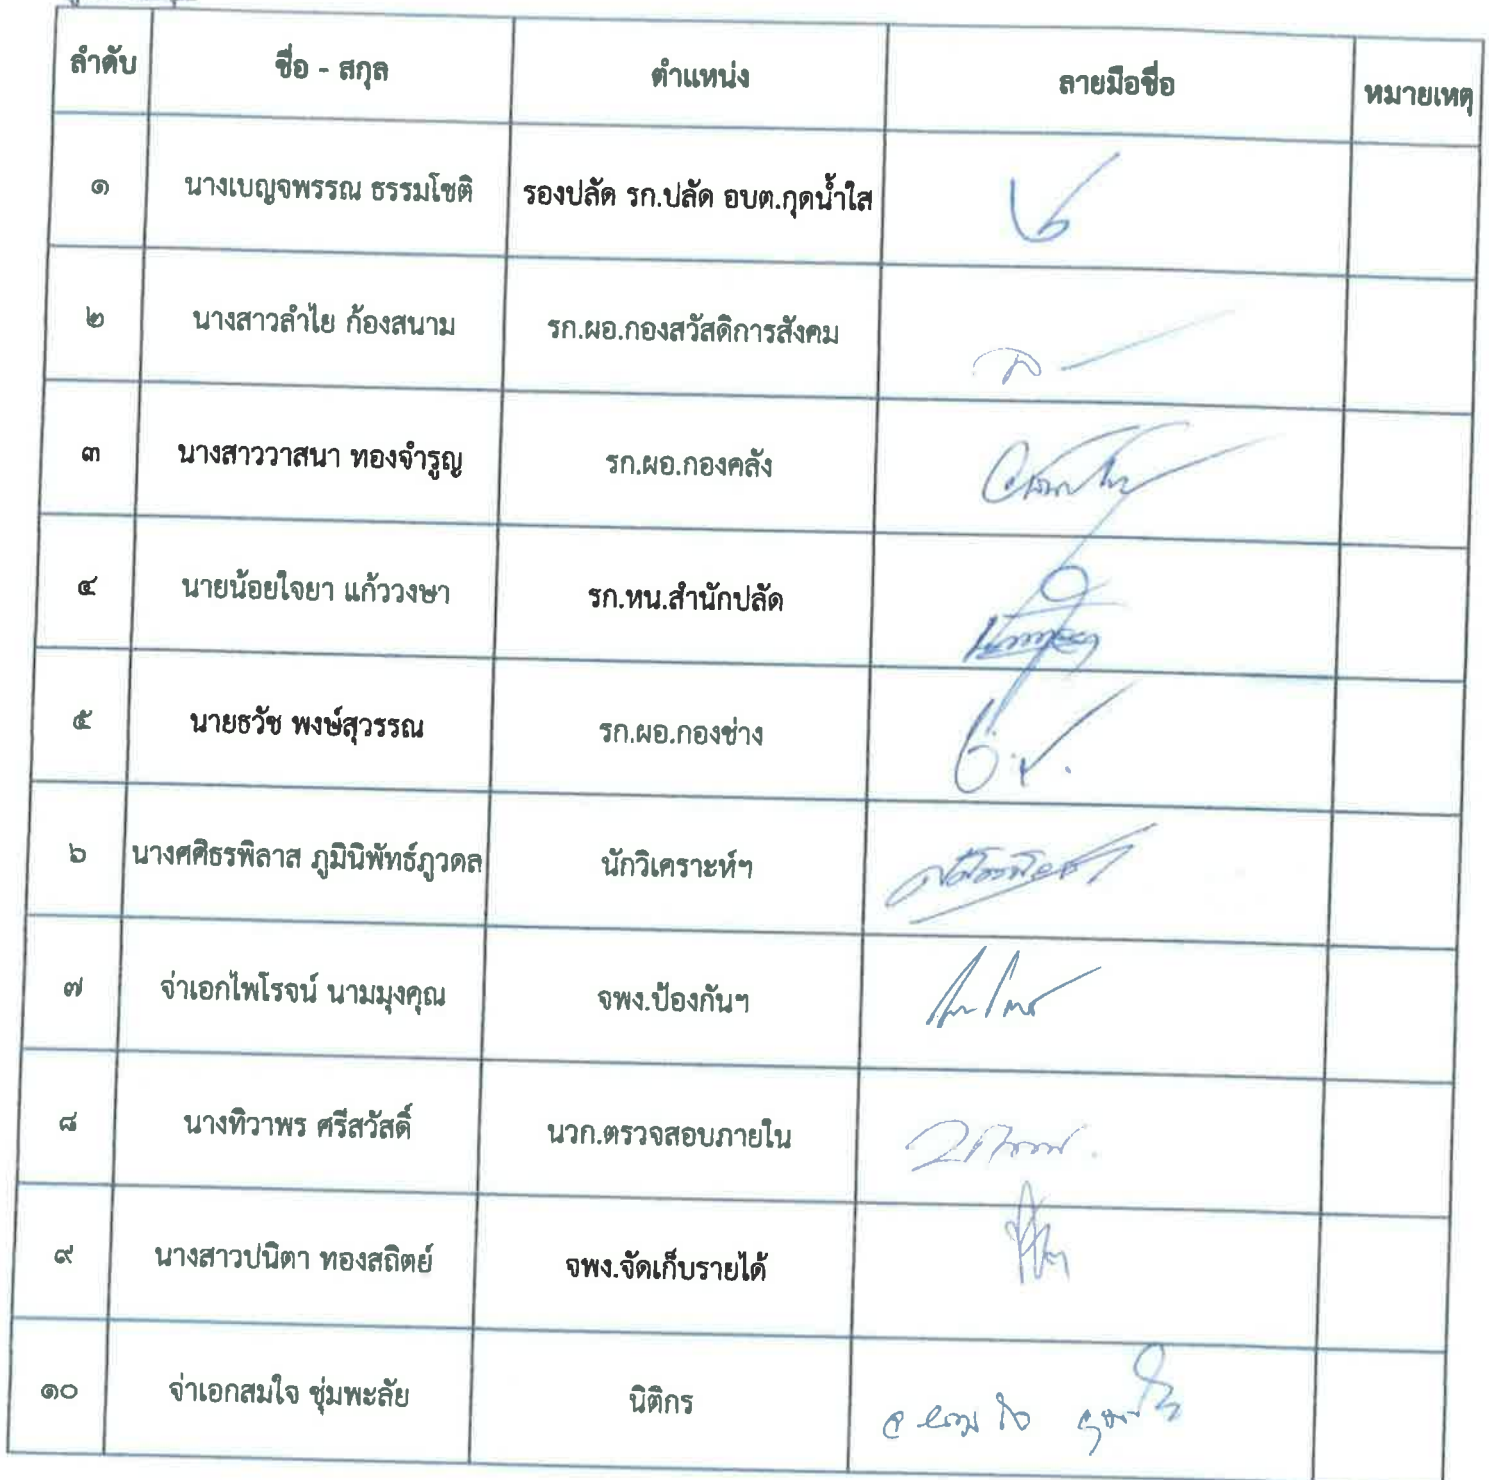 ลำดับ ชื่อ - สกุล ตำแหน่ง ลายมือชื่อ หมายเหตุ
๑ นางเบญจพรรณ ธรรมโชติ รองปลัด รก.ปลัด อบต.กุดน้ำใส
๒ นางสาวลำไย ก้องสนาม รก.ผอ.กองสวัสดิการสังคม
๓ นางสาววาสนา ทองจำรูญ รก.ผอ.กองคลัง
๔ นายน้อยใจยา แก้ววงษา รก.หน.สำนักปลัด
๕ นายธวัช พงษ์สุวรรณ รก.ผอ.กองช่าง
๖ นางศศิธรพิลาส ภูมินิพัทธ์ภูวดล นักวิเคราะห์ฯ
๗ จ่าเอกไพโรจน์ นามมุงคุณ จพง.ป้องกันฯ
๘ นางทิวาพร ศรีสวัสดิ์ นวก.ตรวจสอบภายใน
๙ นางสาวปนิตา ทองสถิตย์ จพง.จัดเก็บรายได้
๑๐ จ่าเอกสมใจ ชุ่มพะลัย นิติกร